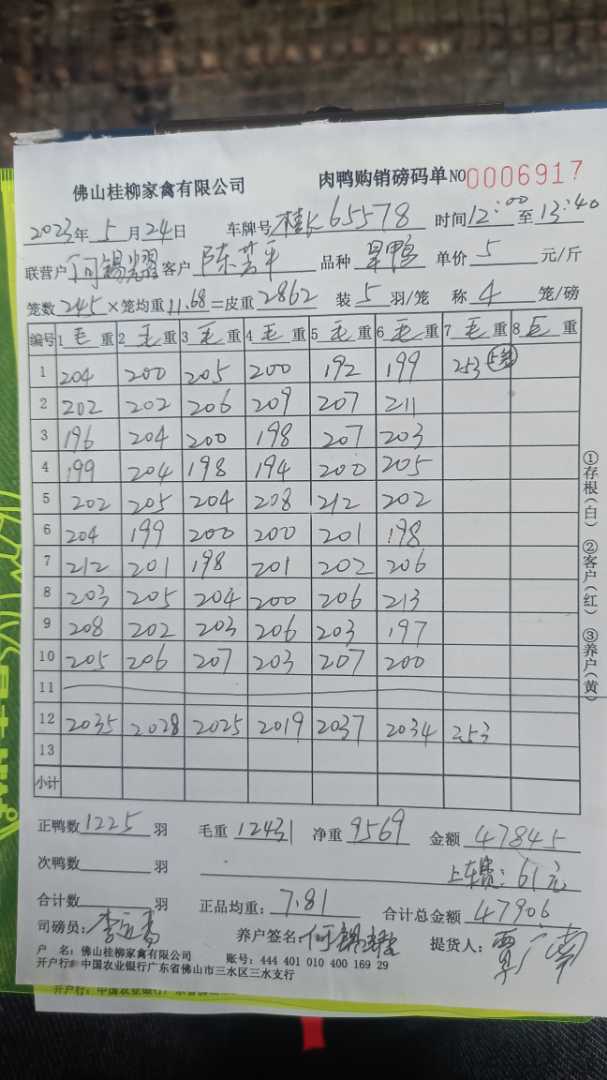 佛山桂柳家禽有限公司 肉鸭购销磅码单 NO 0006917
2023年 5月24日 车牌号 桂长65578 时间12:00至13:40
联营户 何锡耀 客户 陈芳平 品种 旱鸭 单价 5 元/斤
笼数 245 ×笼均重 11.68 =皮重 2862 装 5 羽/笼 称 4 笼/磅
编号 1毛重 2毛重 3毛重 4毛重 5毛重 6毛重 7毛重 8毛重
1 204 200 205 200 192 199 253
2 202 202 206 209 207 211
3 196 204 200 198 207 203
4 199 204 198 194 200 205
5 202 205 204 208 212 202
6 204 199 200 200 201 198
7 212 201 198 201 202 206
8 203 205 204 200 206 213
9 208 202 203 206 203 197
10 205 206 207 203 207 200
11
12 2035 2028 2025 2019 2037 2034 253
13
小计
①存根(白) ②客户(红) ③养户(黄)
正鸭数 1225 羽 毛重 12431 净重 9569 金额 47845
次鸭数 羽 上车费:61元
合计数 羽 正品均重: 7.81 合计总金额 47906
司磅员: 养户签名: 何锡耀 提货人: 覃广南
户 名: 佛山桂柳家禽有限公司 账号: 444 401 010 400 169 29
开户行: 中国农业银行广东省佛山市三水区三水支行